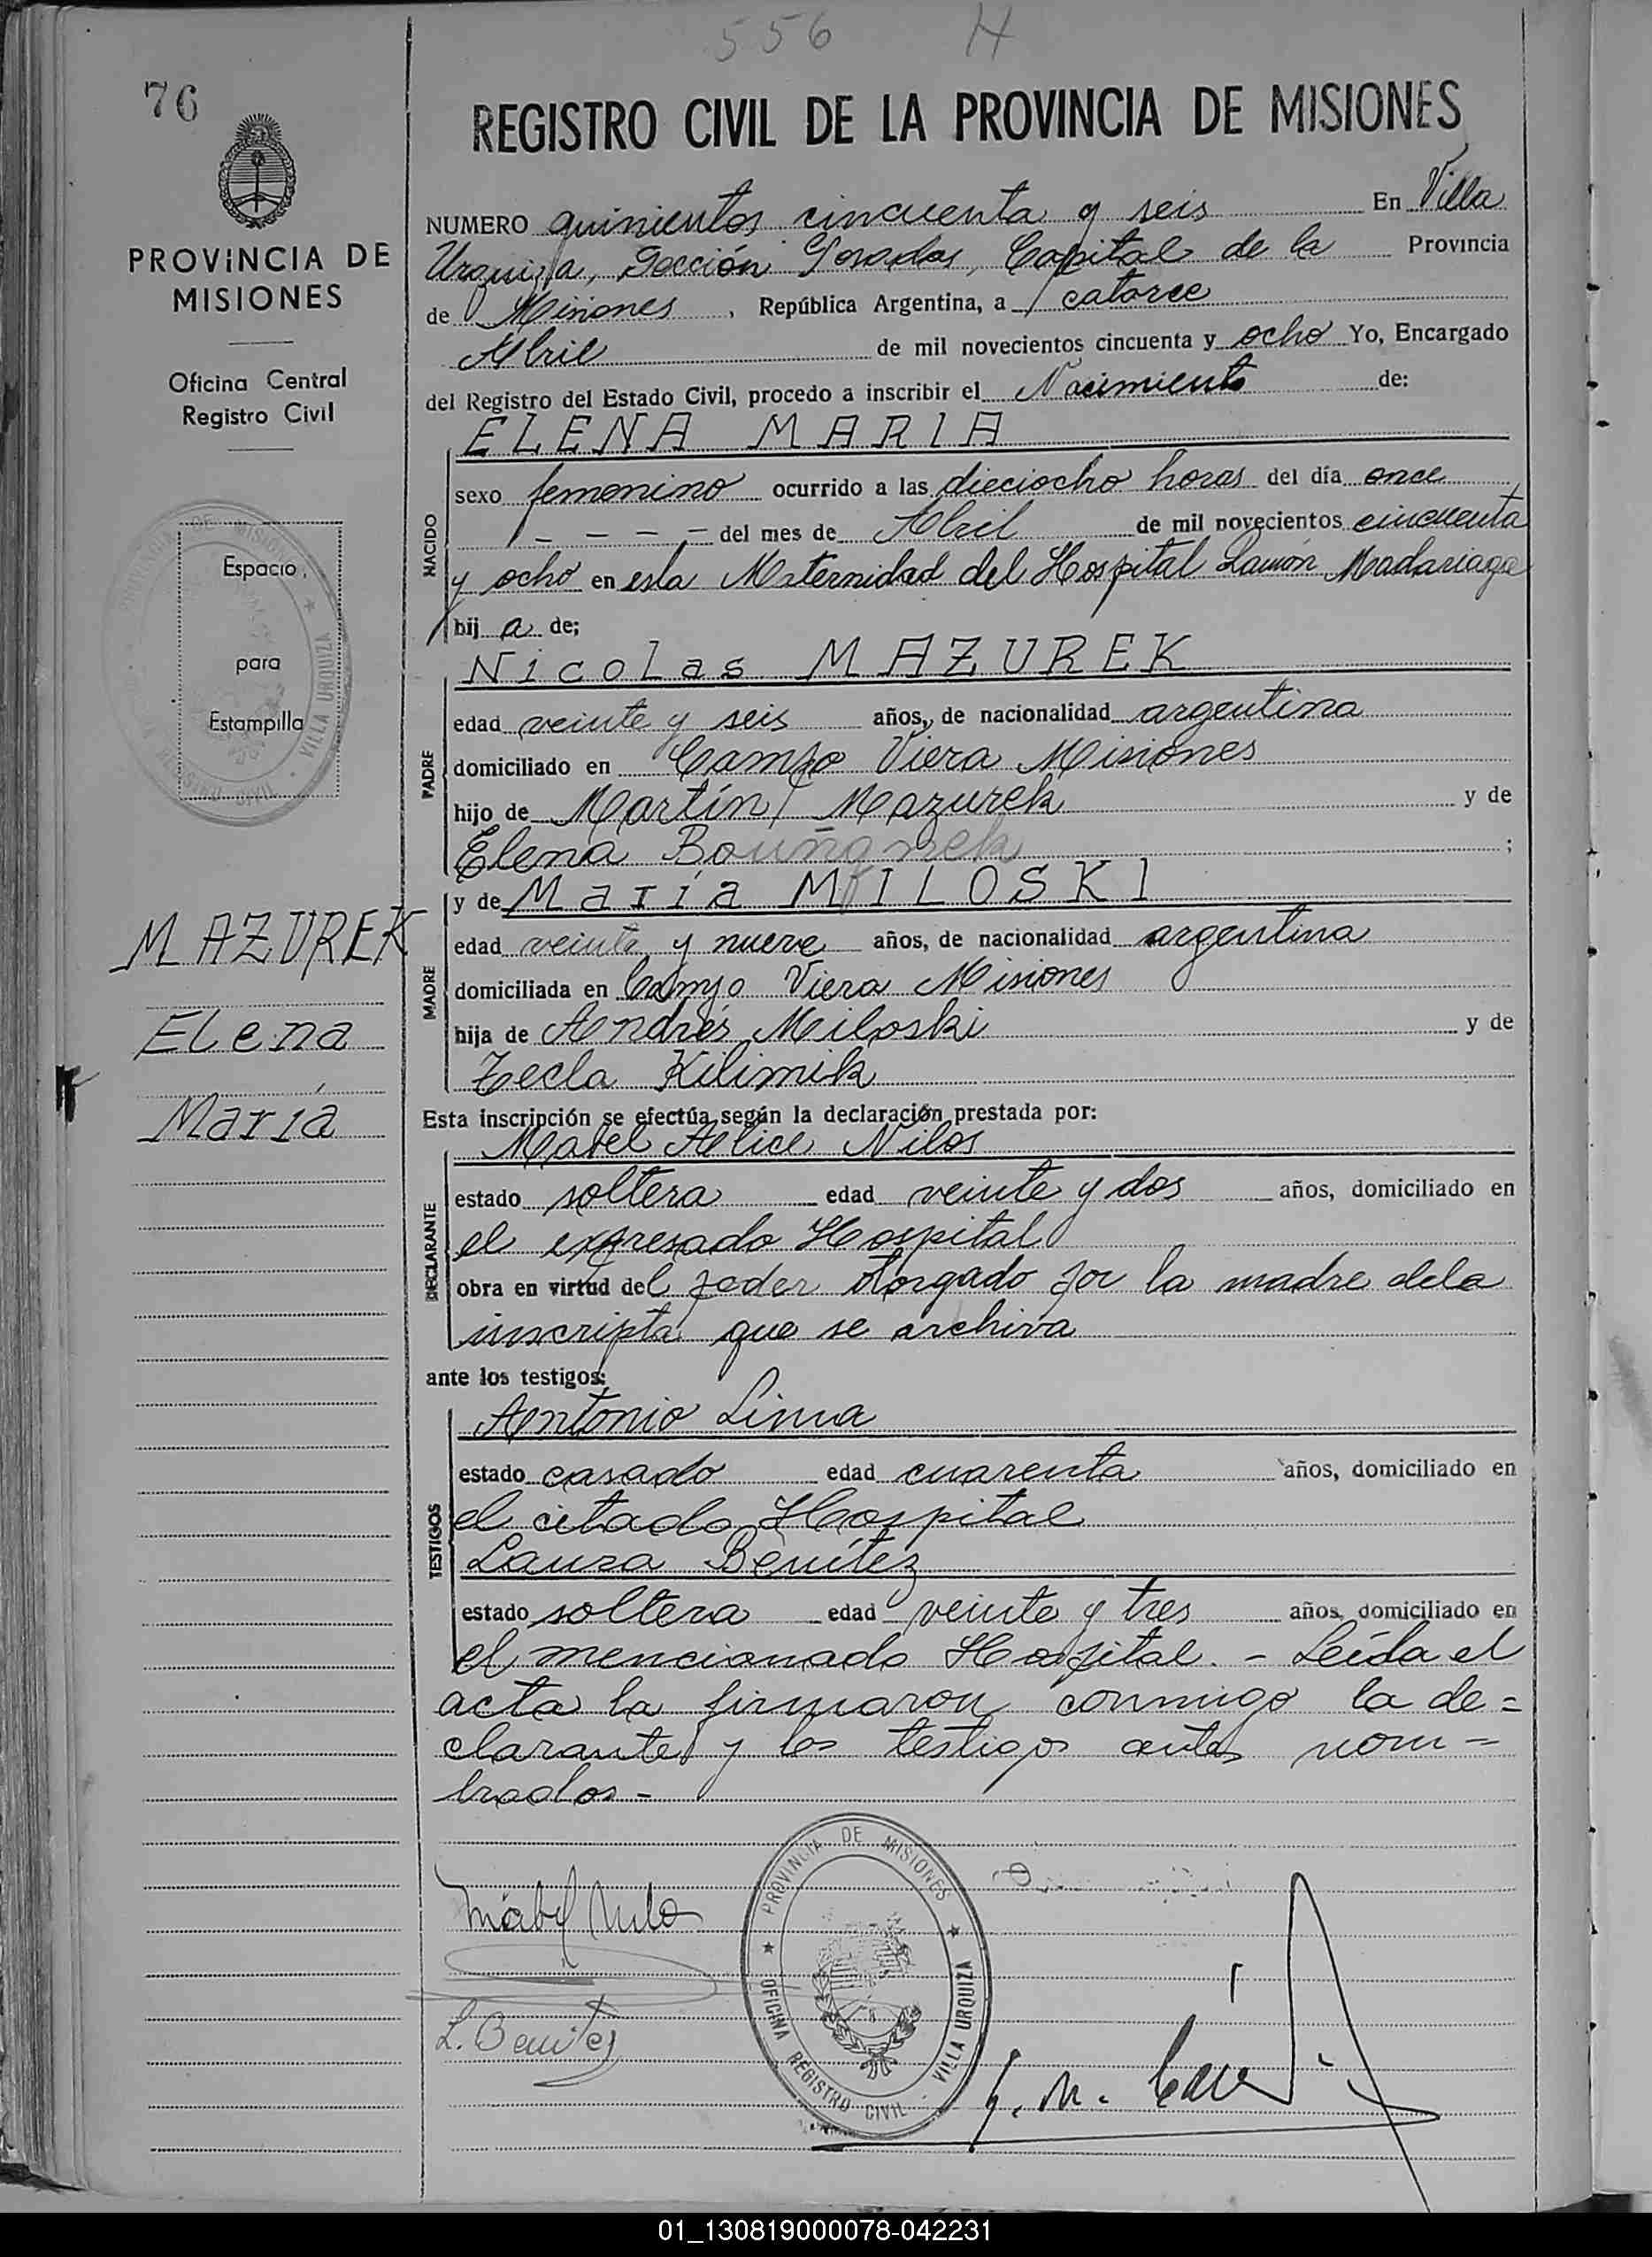 556 H
76
REGISTRO CIVIL DE LA PROVINCIA DE MISIONES
PROVINCIA DE
MISIONES
Oficina Central
Registro Civil
Espacio
para
Estampilla
MAZUREK
Elena
María
NUMERO quinientos cincuenta y seis En Villa
Urquiza, Sección Posadas, Capital de la Provincia
de Misiones, República Argentina, a catorce
Abril de mil novecientos cincuenta y ocho Yo, Encargado
del Registro del Estado Civil, procedo a inscribir el Nacimiento de:
ELENA MARIA
NACIDO
sexo femenino ocurrido a las dieciocho horas del día once
- - - - del mes de Abril de mil novecientos cincuenta
y ocho en esla Maternidad del Hospital Ramón Madariaga
hij a de;
Nicolas MAZUREK
PADRE
edad veinte y seis años, de nacionalidad argentina
domiciliado en Campo Viera Misiones
hijo de Martín Mazurek y de
Elena ;
y de María MILOSKI
MADRE
edad veinte y nueve años, de nacionalidad argentina
domiciliada en Campo Viera Misiones
hija de Andrés Miloski y de
Tecla Kilimik
Esta inscripción se efectúa según la declaración prestada por:
Mabel Alice Nilos
DECLARANTE
estado soltera edad veinte y dos años, domiciliado en
el expresado Hospital
obra en virtud del poder otorgado por la madre dela
inscripta que se archiva
ante los testigos:
Antonio Lima
TESTIGOS
estado casado edad cuarenta años, domiciliado en
el citado Hospital
Laura Benítez
estado soltera edad veinte y tres años, domiciliado en
el mencionado Hospital. - Leída el
acta la firmaron conmigo la de=
clarante y los testigos antes nom=
brados.-
L. Benitez
PROVINCIA DE MISIONES
OFICINA REGISTRO CIVIL - VILLA URQUIZA
01_130819000078-042231